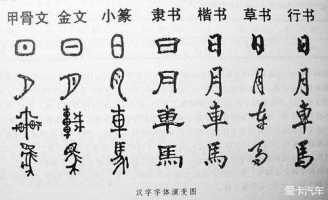 甲骨文 金文 小篆 隶书 楷书 草书 行书
日 日 日 日 日 日 日
月 月 月 月 月 月 月
車 車 車 車 車 车 車
馬 馬 馬 馬 馬 马 馬
汉字字体演变图
爱卡汽车